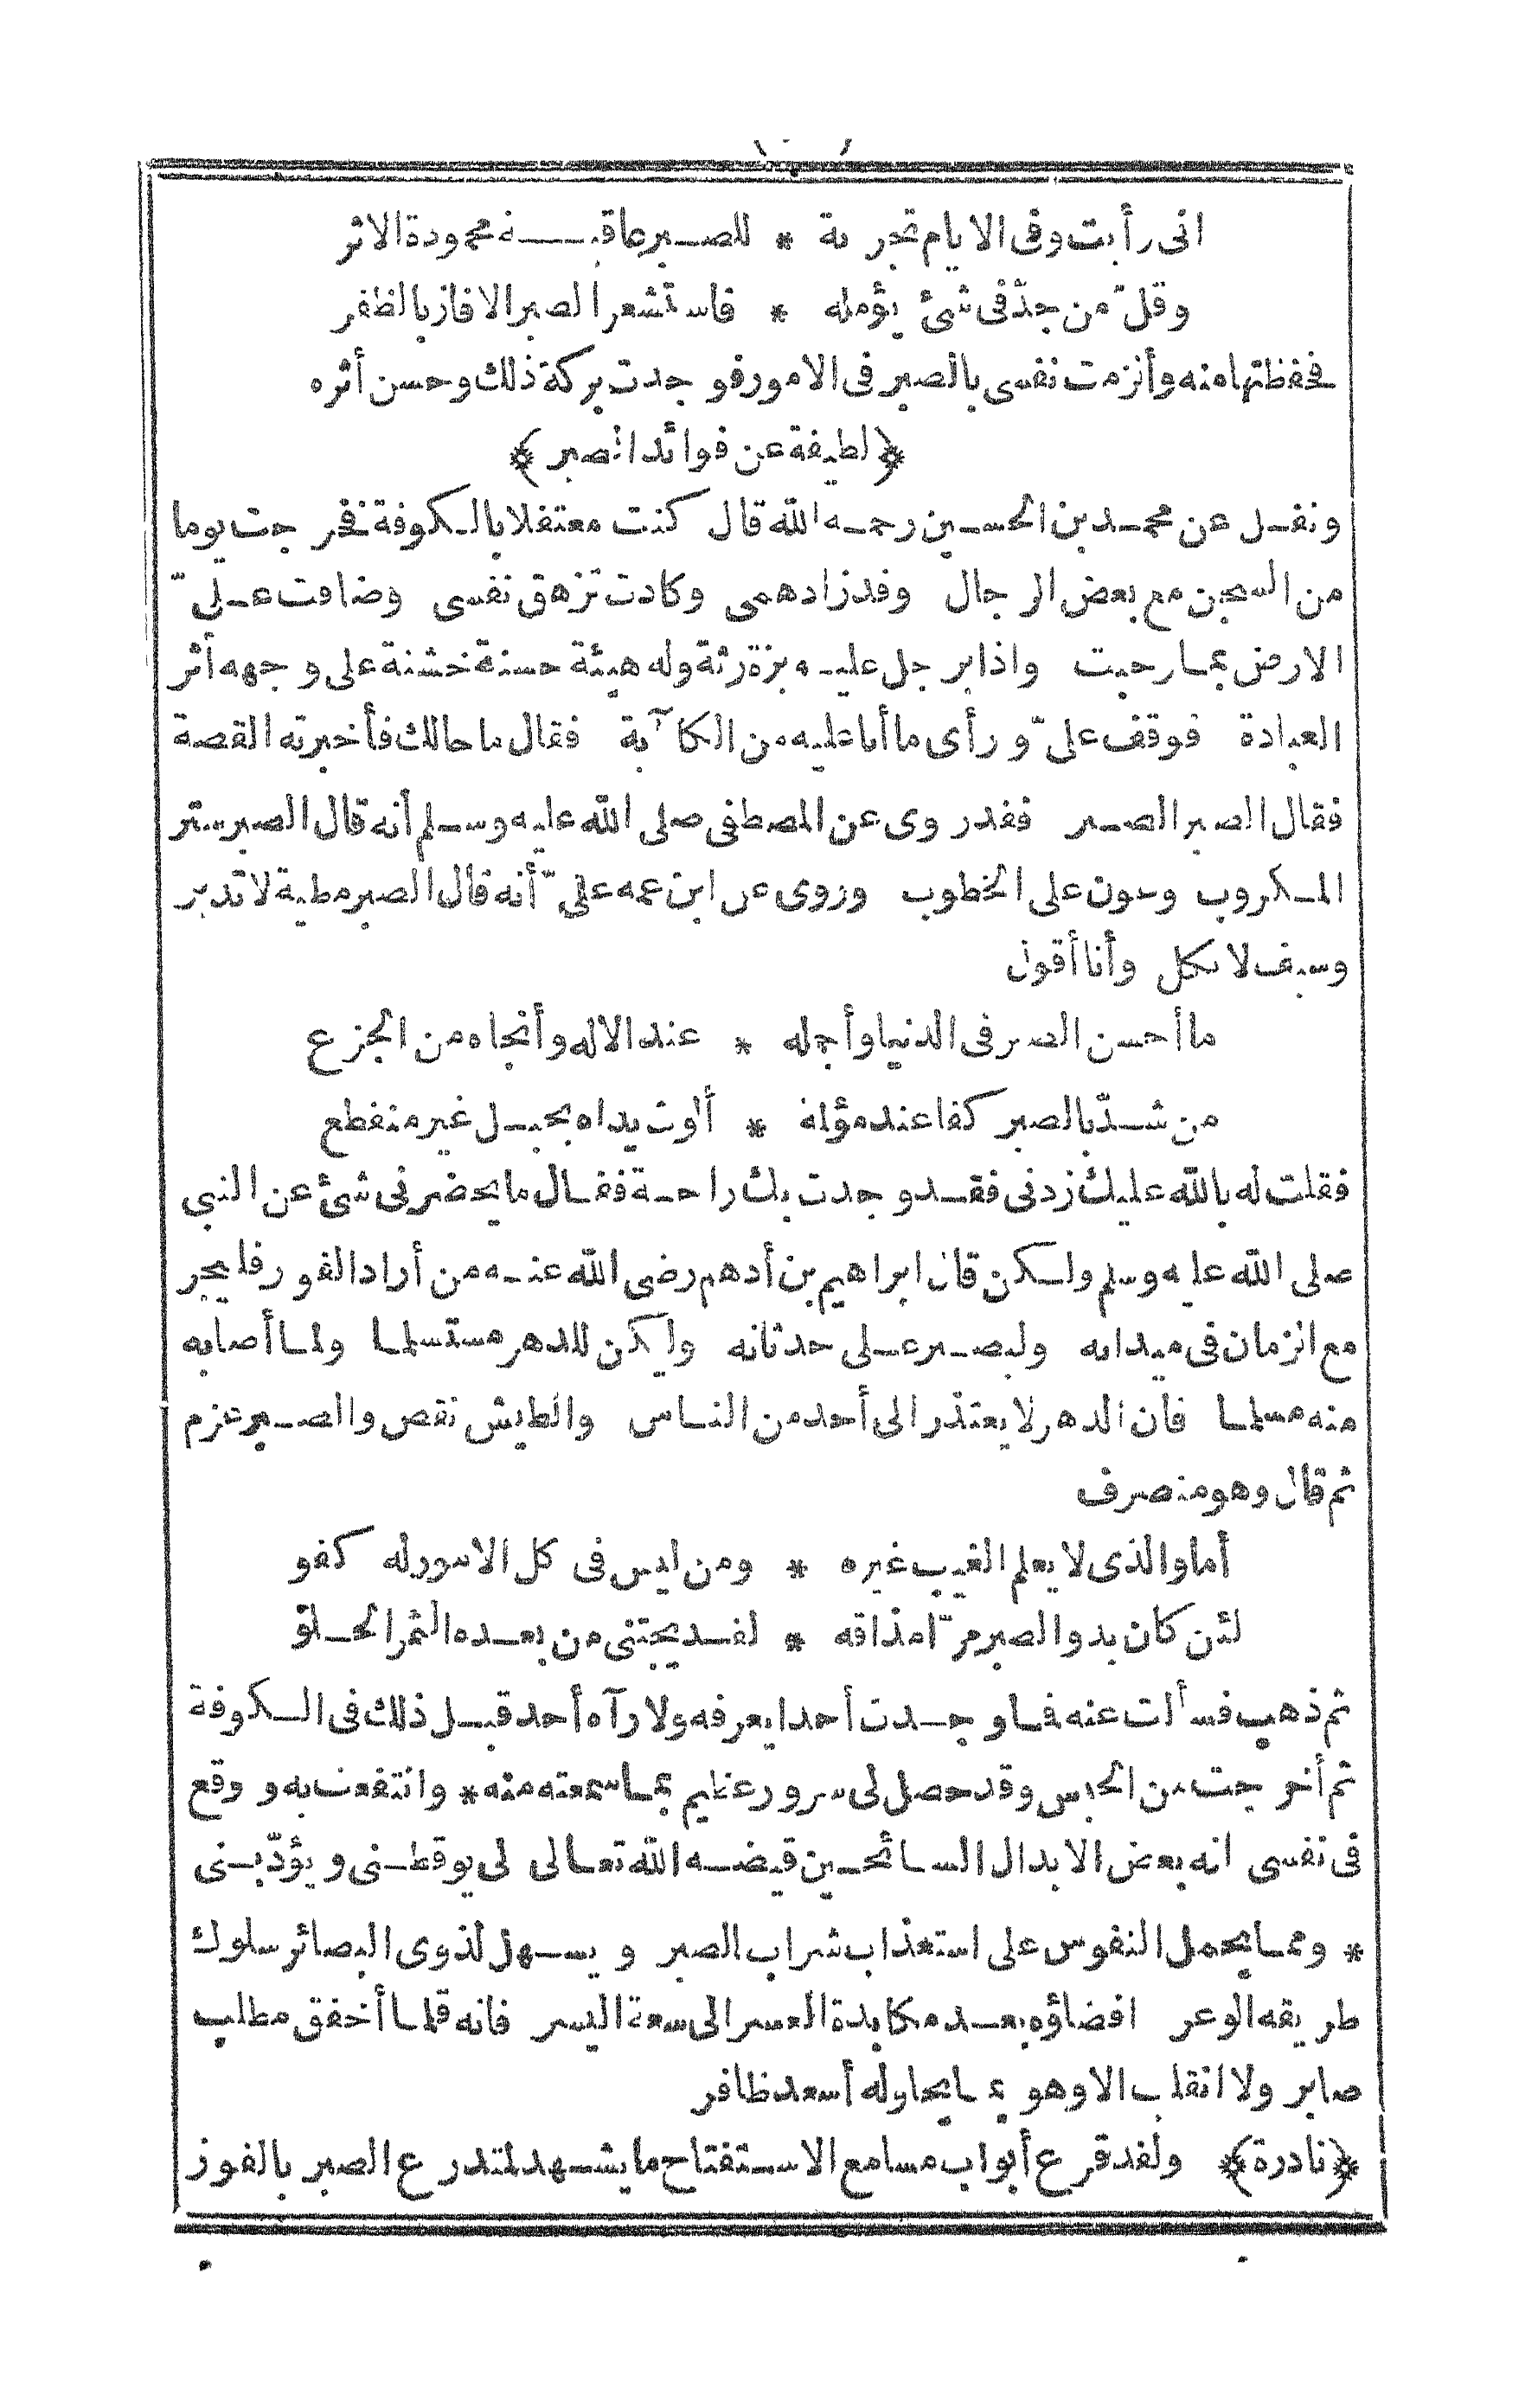 انى رأيت وفى الايام تجربة * للصبر عاقبة محمودة الاثر
وقل من جدّ فى شئ يؤمله * فاستشعر الصبر الا فاز بالظفر
فحفظتها منه وألزمت نفسى بالصبر فى الامور فوجدت بركة ذلك وحسن أثره
﴿لطيفة عن فوائد الصبر﴾
ونقل عن محمد بن الحسين رحمه الله قال كنت معتقلا بالكوفة فخرجت يوما
من السجن مع بعض الرجال وقد زاد همى وكادت تزهق نفسى وضاقت علىّ
الارض بما رحبت واذا برجل عليه بزة رثة وله هيئة حسنة خشنة على وجهه أثر
العبادة فوقف علىّ ورأى ما أنا عليه من الكآبة فقال ما حالك فأخبرته القصة
فقال الصبر الصبر فقد روى عن المصطفى صلى الله عليه وسلم أنه قال الصبر ستر
المكروب وعون على الخطوب وروى عن ابن عمه علىّ أنه قال الصبر مطية لا تدبر
وسيف لا يكل وأنا أقول
ما أحسن الصبر فى الدنيا وأجمله * عند الاله وأنجاه من الجزع
من شدّ بالصبر كفا عند مؤلمة * ألوت يداه بحبل غير منقطع
فقلت له بالله عليك زدنى فقد وجدت بك راحة فقال ما يحضرنى شئ عن النبى
صلى الله عليه وسلم ولكن قال ابراهيم بن أدهم رضى الله عنه من أراد الفوز فليجر
مع الزمان فى ميدانه وليصبر على حدثانه وليكن للدهر مستسلما ولما أصابه
منه مسلما فان الدهر لا يعتذر الى أحد من الناس والطيش نقص والصبر عزم
ثم قال وهو منصرف
أما والذى لا يعلم الغيب غيره * ومن ليس فى كل الامور له كفو
لئن كان بدو الصبر مرّا مذاقه * لقد يجتنى من بعده الثمر الحلو
ثم ذهب فسألت عنه فما وجدت أحدا يعرفه ولا رآه أحد قبل ذلك فى الكوفة
ثم أخرجت من الحبس وقد حصل لى سرور عظيم بما سمعته منه * وانتفعت به ووقع
فى نفسى انه بعض الابدال السائحين قيضه الله تعالى لى يوقظنى ويؤدّبنى
* ومما يحمل النفوس على استعذاب شراب الصبر ويسهل لذوى البصائر سلوك
طريقه الوعر افضاؤه بعد مكابدة العسر الى سعة اليسر فانه قلما أخفق مطلب
صابر ولا انقلب الا وهو بما يحاوله أسعد ظافر
﴿نادرة﴾ ولقد قرع أبواب مسامع الاستفتاح ما يشهد لمتدرع الصبر بالفوز